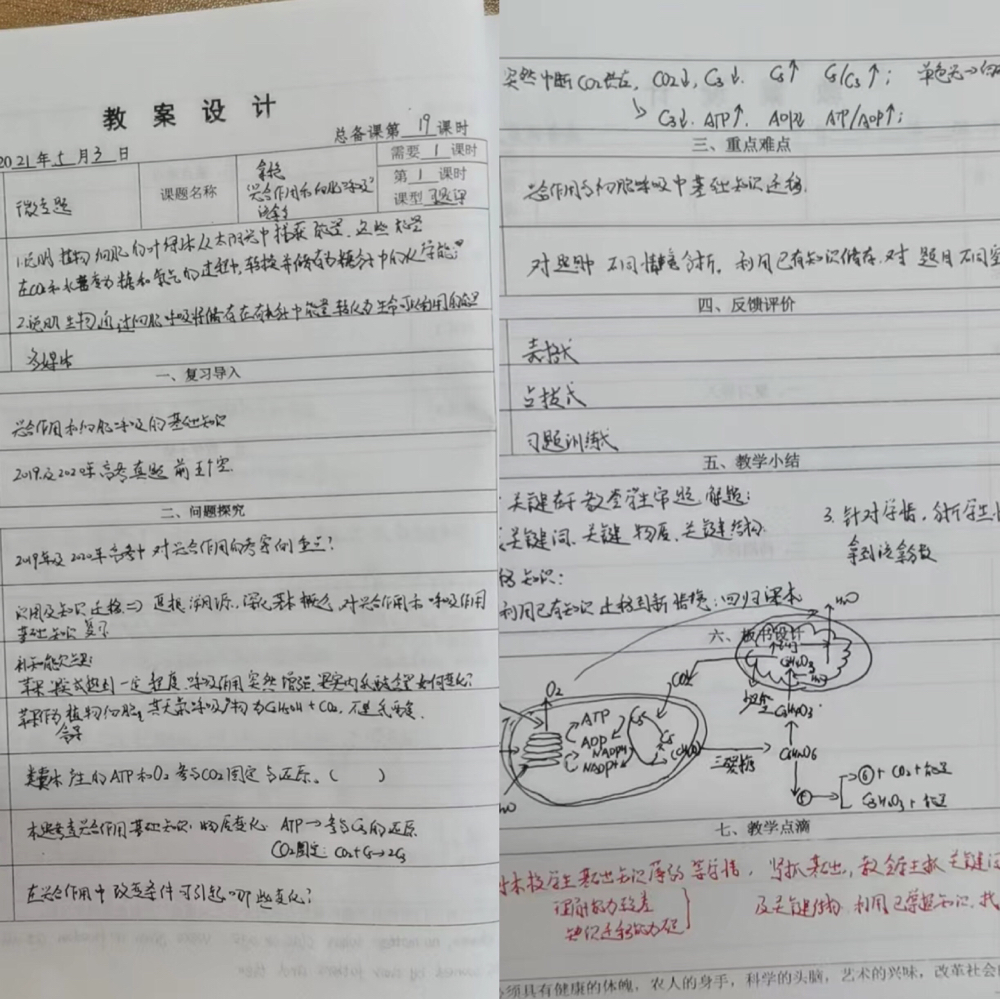 教案设计
总备课第 19 课时
2021年5月3日
需要 1 课时
第 1 课时
课型
微专题
课题名称
拿稳
“光合作用和细胞呼吸”
1.说明植物细胞的叶绿体从太阳光中捕获能量,这些能量
在CO2和水转变为糖和氧气的过程中,转换并储存为糖分子中的化学能。
2.说明生物通过细胞呼吸将储存在有机分子中能量转化为生命可以利用的能量
多媒体
一、复习导入
光合作用和细胞呼吸的基础知识
2019及2020年高考真题 前五个空.
二、问题探究
2019年及2020年高考中对光合作用的考察侧重点?
识用及知识迁移⇒追根溯源,深化基本概念,对光合作用和呼吸作用
基础知识复习
苹果 成熟到一定程度,呼吸作用突然增强,果实内 如何变化?
苹果作为植物细胞,其无氧呼吸产物为C2H5OH+CO2,不是乳酸.
类囊体产生的ATP和O2参与CO2固定与还原。( )
本题考查光合作用基础知识,物质变化 ATP→参与C3的还原
CO2固定:CO2+C5→2C3
在光合作用中改变条件可引起哪些变化?
突然中断CO2供应, CO2↓, C3↓. C5↑ C5/C3↑;
C3↓. ATP↑. ADP↓ ATP/ADP↑;
三、重点难点
光合作用与细胞呼吸中基础知识迁移.
对题中不同情境分析,利用已有知识储存,对题目不同
四、反馈评价
表格式
点拨式
习题训练
五、教学小结
关键在于教会学生审题,解题:
关键词、关键物质、关键结构.
3.针对学情,分析学生
知识:
利用已有知识迁移到新情境;回归课本
六、板书设计
H2O
CO2
O2
ATP
ADP
NADPH
NADP+
C5
C3
(CH2O)
三碳糖
C3H4O3
C6H12O6
+ CO2 + 能量
C3H4O3 + 能量
七、教学点滴
对本校学生基础知识薄弱等学情,紧抓基础,教会学生抓关键词
理解能力较差
知识迁移能力低
及关键结构,利用已掌握知识,找
须具有健康的体魄,农人的身手,科学的头脑,艺术的兴味,改革社会